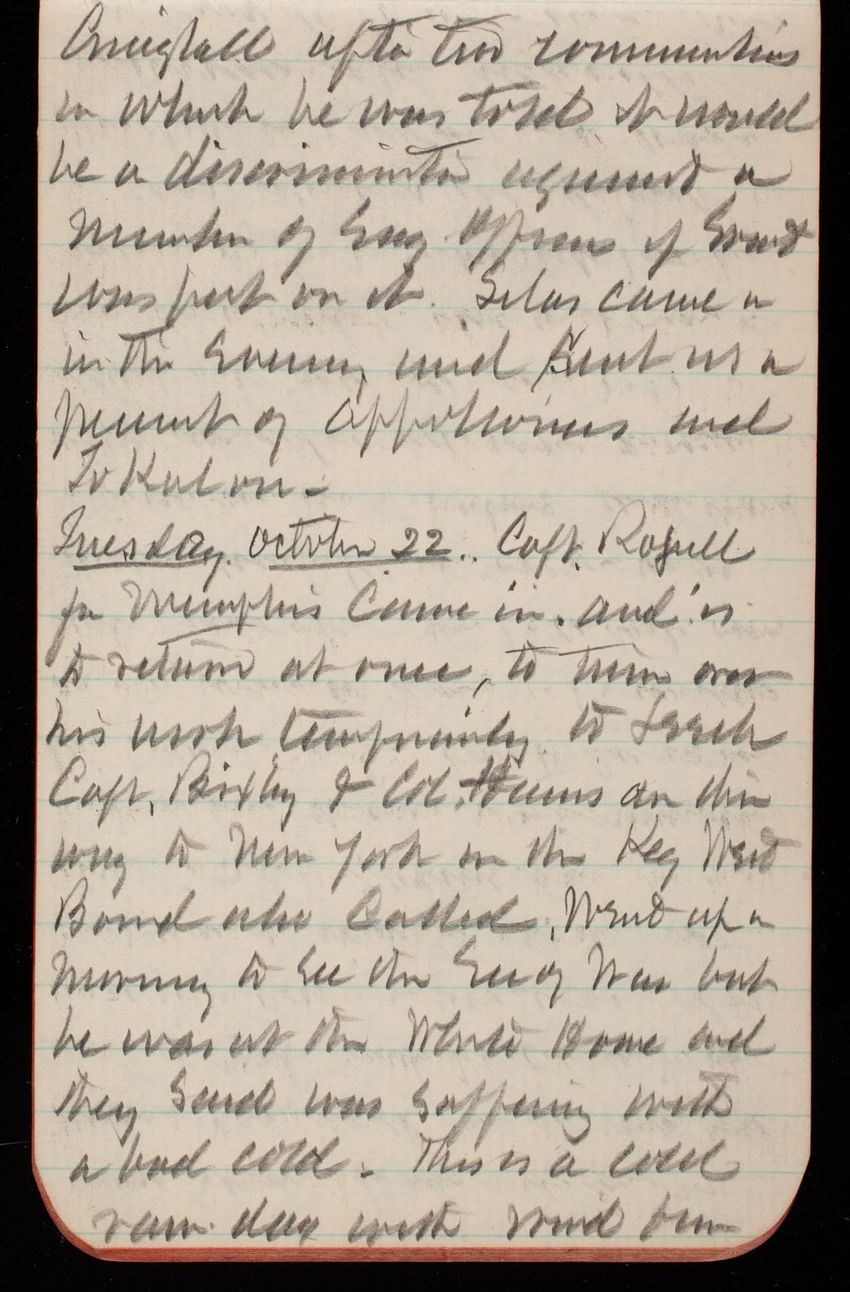 Craighill after two communications
in which he was told it would
be a discrimination against a
member of Eng. Officers if Grant
was put on it. Silas came
in the Evening and sent us a
present of apollinaris and
To Kalon -
Tuesday, October 22. Capt. Rossell
for Memphis Came in, and is
to return at once, to turn over
his work temporarily to Leach
Capt. Bixby & Col. are their
way to New York on the Key West
Board also Called, Went up a
morning to See the Sec of War but
he was at the White House and
they Said was Suffering with
a bad cold. This is a cold
raw day with wind from